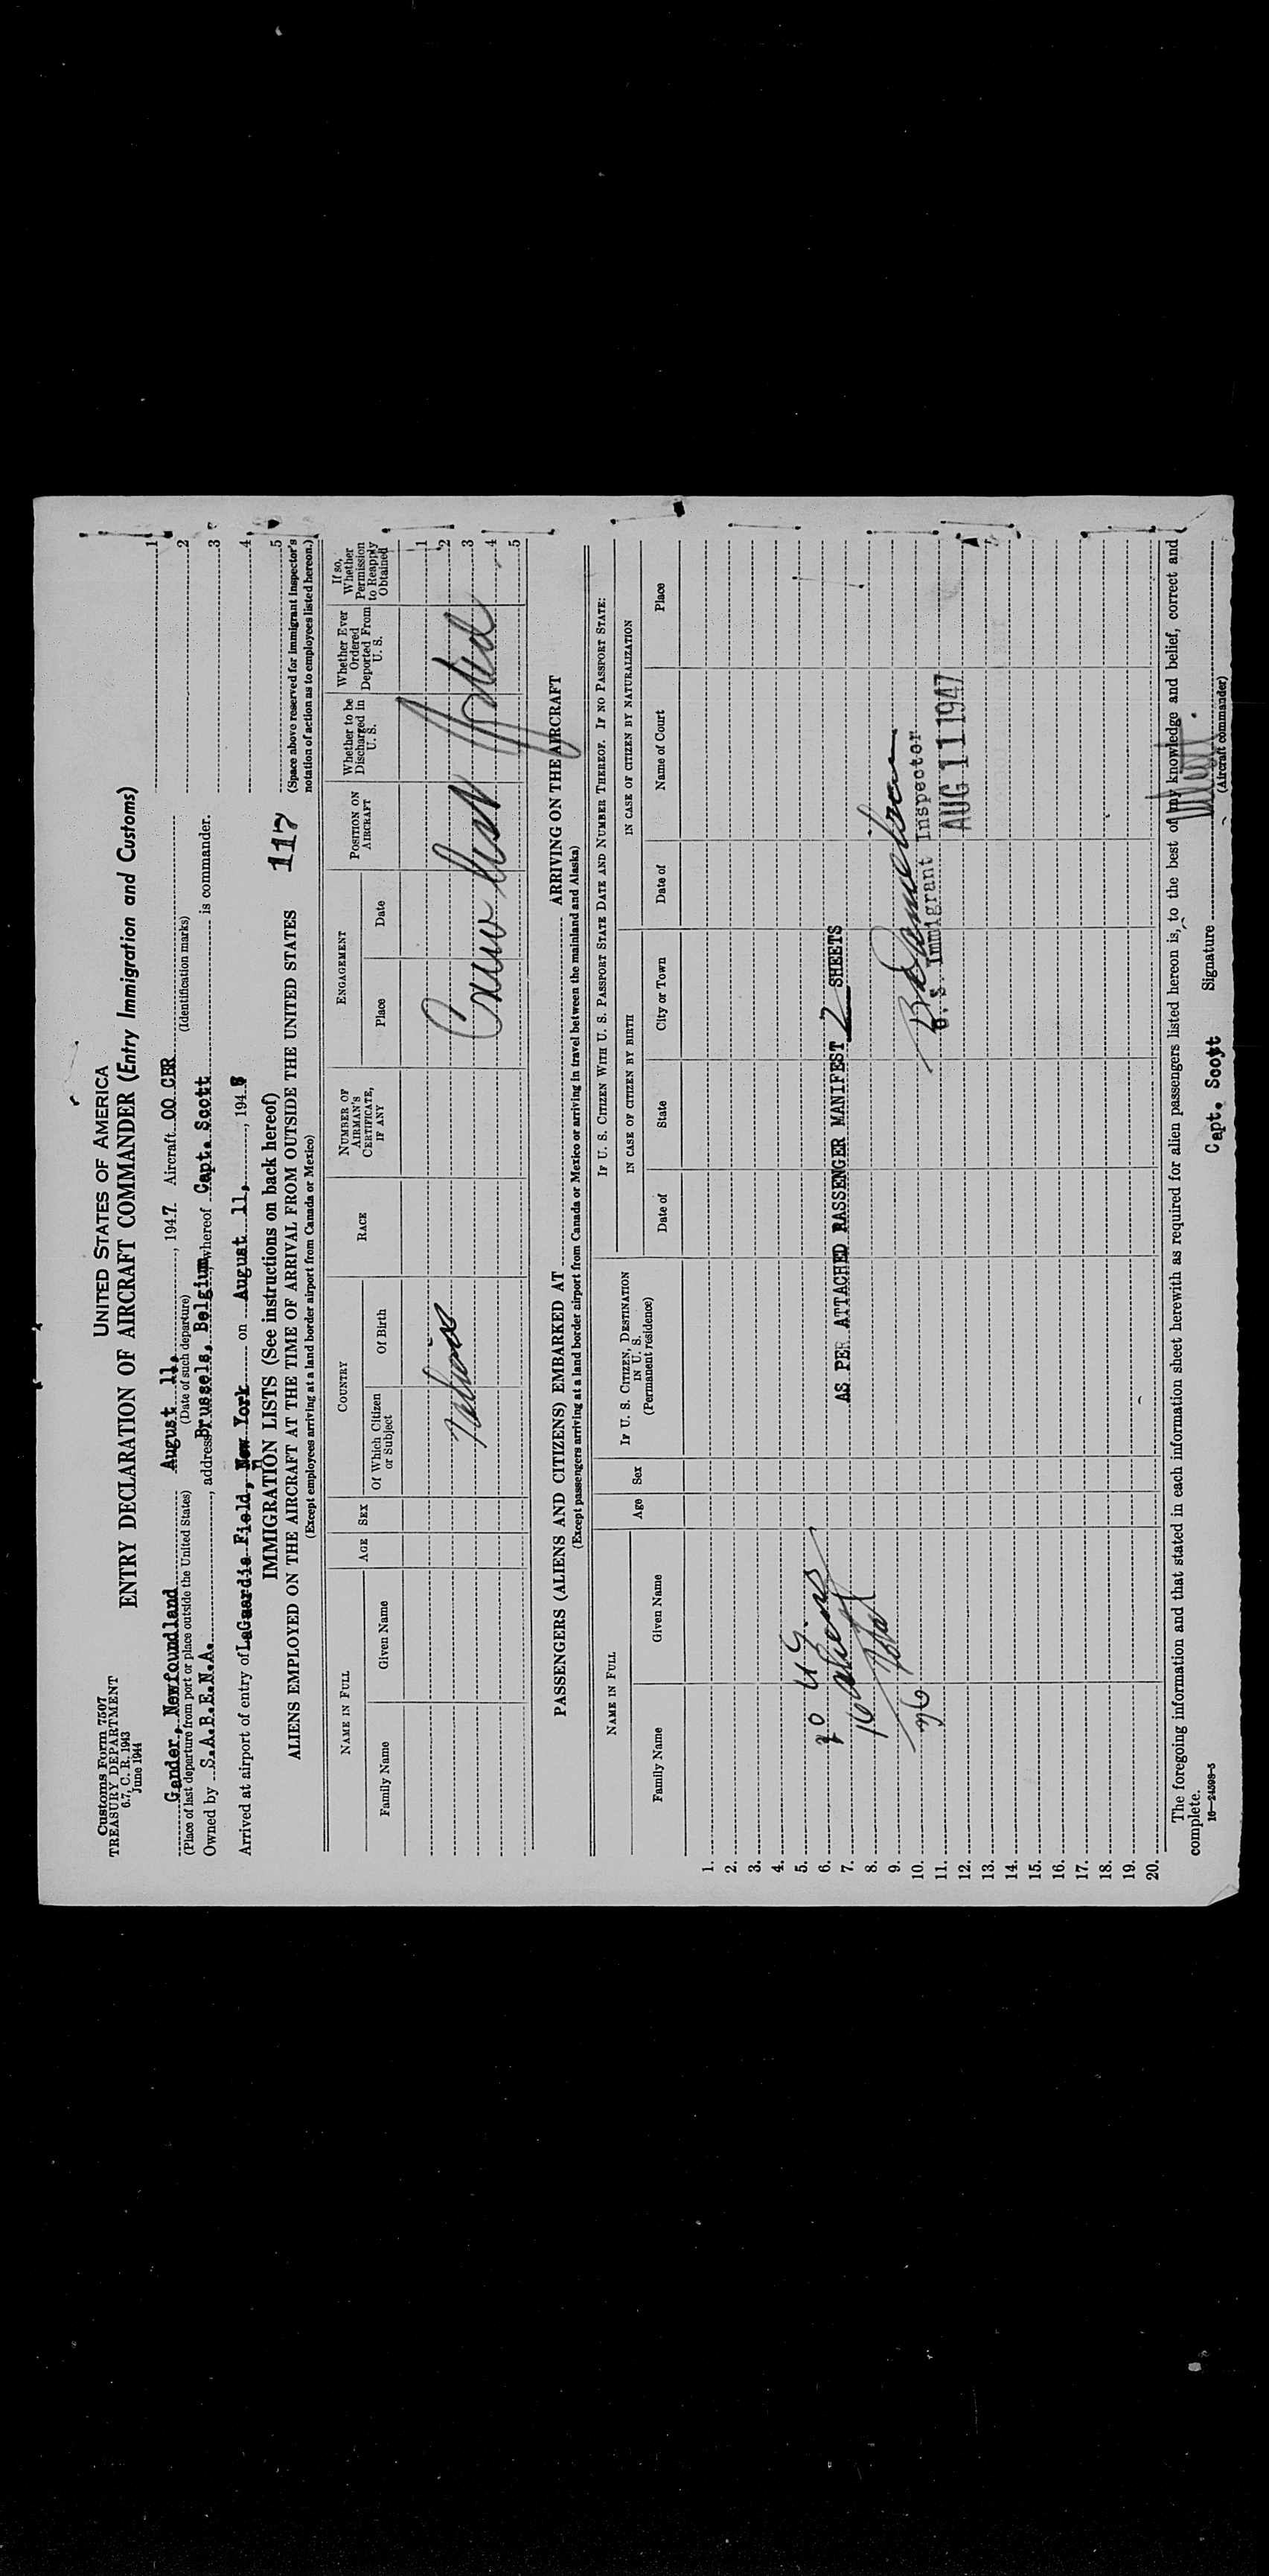 Customs Form 7507
TREASURY DEPARTMENT
6.7, C. R. 1943
June 1944
UNITED STATES OF AMERICA
ENTRY DECLARATION OF AIRCRAFT COMMANDER (Entry Immigration and Customs)
Gander, Newfoundland August 11, , 1947. Aircraft OO CBR
(Place of last departure from port or place outside the United States) (Date of such departure) (Identification marks)
Owned by S.A.B.E.N.A. , address Brussels, Belgium, whereof Capt. Scott is commander.
Arrived at airport of entry of LaGuardia Field, New York on August 11, , 194
1
2
3
4
5
(Space above reserved for immigrant inspector's
notation of action as to employees listed hereon.)
IMMIGRATION LISTS (See instructions on back hereof)
117
ALIENS EMPLOYED ON THE AIRCRAFT AT THE TIME OF ARRIVAL FROM OUTSIDE THE UNITED STATES
(Except employees arriving at a land border airport from Canada or Mexico)
NAME IN FULL
Family Name Given Name
AGE
SEX
COUNTRY
Of Which Citizen or Subject
Of Birth
RACE
NUMBER OF AIRMAN'S CERTIFICATE, IF ANY
ENGAGEMENT
Place Date
POSITION ON AIRCRAFT
Whether to be Discharged in U. S.
Whether Ever Ordered Deported From U. S.
If so, Whether Permission to Reapply Obtained
1
2
3
4
5
Crew
PASSENGERS (ALIENS AND CITIZENS) EMBARKED AT ARRIVING ON THE AIRCRAFT
(Except passengers arriving at a land border airport from Canada or Mexico or arriving in travel between the mainland and Alaska)
NAME IN FULL
Family Name Given Name
Age
Sex
IF U. S. CITIZEN, DESTINATION IN U. S.
(Permanent residence)
IF U. S. CITIZEN WITH U. S. PASSPORT STATE DATE AND NUMBER THEREOF. IF NO PASSPORT STATE:
IN CASE OF CITIZEN BY BIRTH
IN CASE OF CITIZEN BY NATURALIZATION
Date of State City or Town Date of Name of Court Place
1.
2.
3.
4.
5. 20 US
6.
7. 16 aliens AS PER ATTACHED PASSENGER MANIFEST 7 SHEETS
8.
9. Total
10. 36
U. S. Immigrant Inspector
11.
AUG 11 1947
12.
13.
14.
15.
16.
17.
18.
19.
20.
The foregoing information and that stated in each information sheet herewith as required for alien passengers listed hereon is, to the best of my knowledge and belief, correct and
complete.
16—24598-5
Capt. Scott Signature
(Aircraft commander)